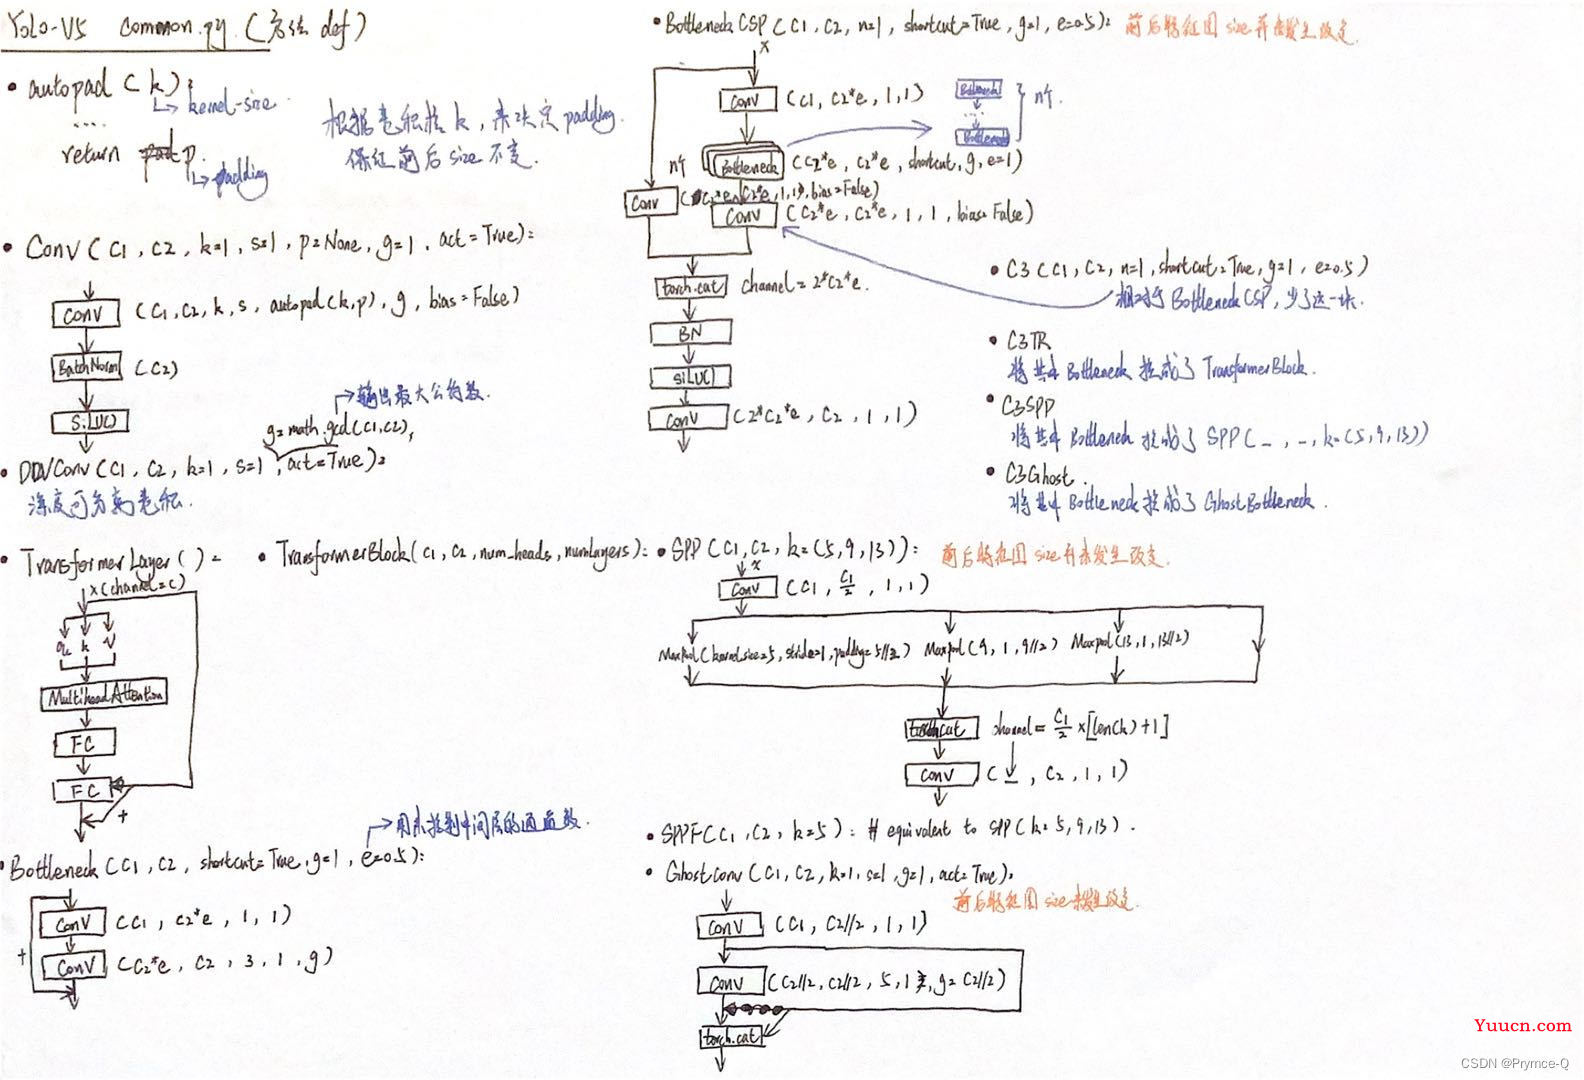 Yolo-V5 common.py (方法 def)
• autopad (k):
↳ kernel-size
....
return p.
↳ padding
根据卷积核k,来决定padding.
保证前后size不变.
• Conv (C1, C2, k=1, s=1, p=None, g=1, act=True):
Conv (C1, C2, k, s, autopad(k,p), g, bias=False)
BatchNorm (C2)
SiLU()
→ 输出最大公约数.
g=math.gcd(C1,C2),
• DWConv (C1, C2, k=1, s=1, act=True):
深度可分离卷积.
• TransformerLayer ( ):
x(channel=c)
q k v
MultiheadAttention
FC
FC
+
• TransformerBlock (C1, C2, num_heads, numlayers):
→ 用来控制中间层的通道数.
• Bottleneck (C1, C2, shortcut=True, g=1, e=0.5):
Conv (C1, C2*e, 1, 1)
+
Conv (C2*e, C2, 3, 1, g)
• BottleneckCSP (C1, C2, n=1, shortcut=True, g=1, e=0.5): 前后特征图size并未发生改变.
x
Conv (C1, C2*e, 1, 1)
Bottleneck
....
Bottleneck
n个.
n个 Bottleneck (C2*e, C2*e, shortcut, g, e=1)
Conv (C2*e, C2*e, 1, 1, bias=False)
Conv (C2*e, C2*e, 1, 1, bias=False)
torch.cat channel=2*C2*e.
BN
SiLU()
Conv (2*C2*e, C2, 1, 1)
• C3 (C1, C2, n=1, shortcut=True, g=1, e=0.5)
相对于BottleneckCSP,少了这一块.
• C3TR
将其中Bottleneck换成了TransformerBlock.
• C3SPP
将其中Bottleneck换成了SPP(_, _, k=(5,9,13))
• C3Ghost.
将其中Bottleneck换成了GhostBottleneck.
• SPP (C1, C2, k=(5,9,13)): 前后特征图size并未发生改变.
x
Conv (C1, C1/2, 1, 1)
MaxPool (kernel_size=5, stride=1, padding=5//2) Maxpool (9, 1, 9//2) Maxpool (13, 1, 13//2)
torch.cat channel = C1/2 ×[len(k)+1]
Conv ( _, C2, 1, 1)
• SPPF (C1, C2, k=5): # equivalent to SPP (k=5,9,13).
• Ghostconv (C1, C2, k=1, s=1, g=1, act=True):
前后特征图size未发生改变.
Conv (C1, C2//2, 1, 1)
Conv (C2//2, C2//2, 5, 1, g=C2//2)
torch.cat
Yuucn.com
CSDN @Prymce-Q